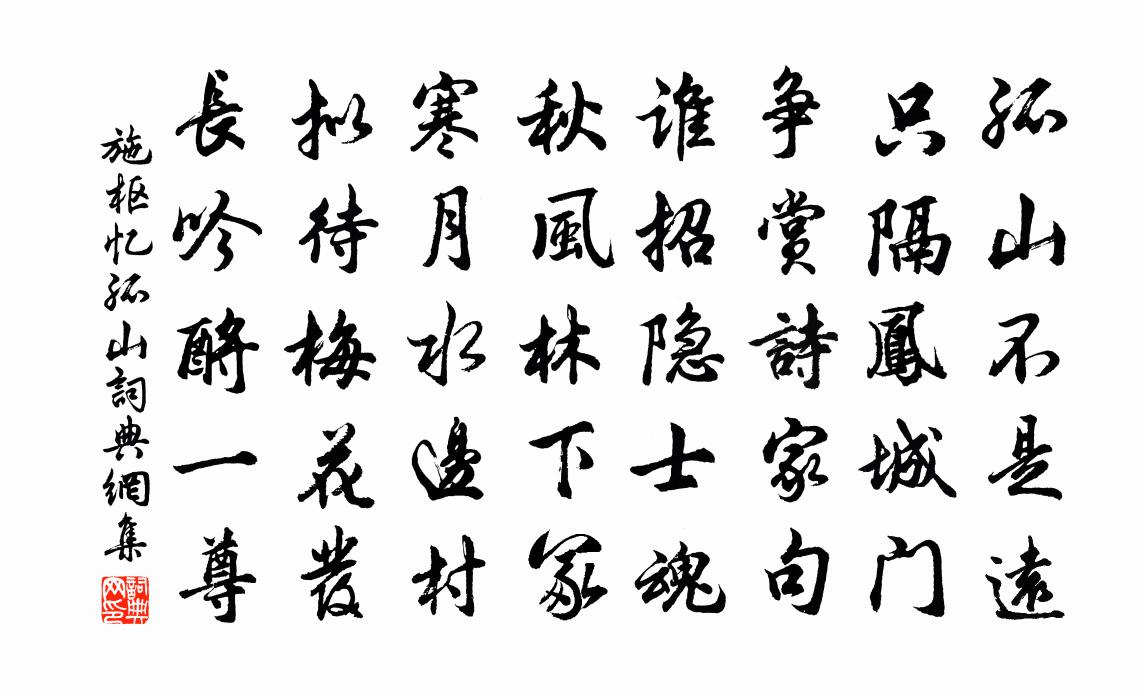 孤山不是遠
只隔鳳城门
争賞詩家句
谁招隐士魂
秋風林下冢
寒月水邊村
拟待梅花發
長吟酹一尊
施枢忆孤山詞典網集
詞典网印